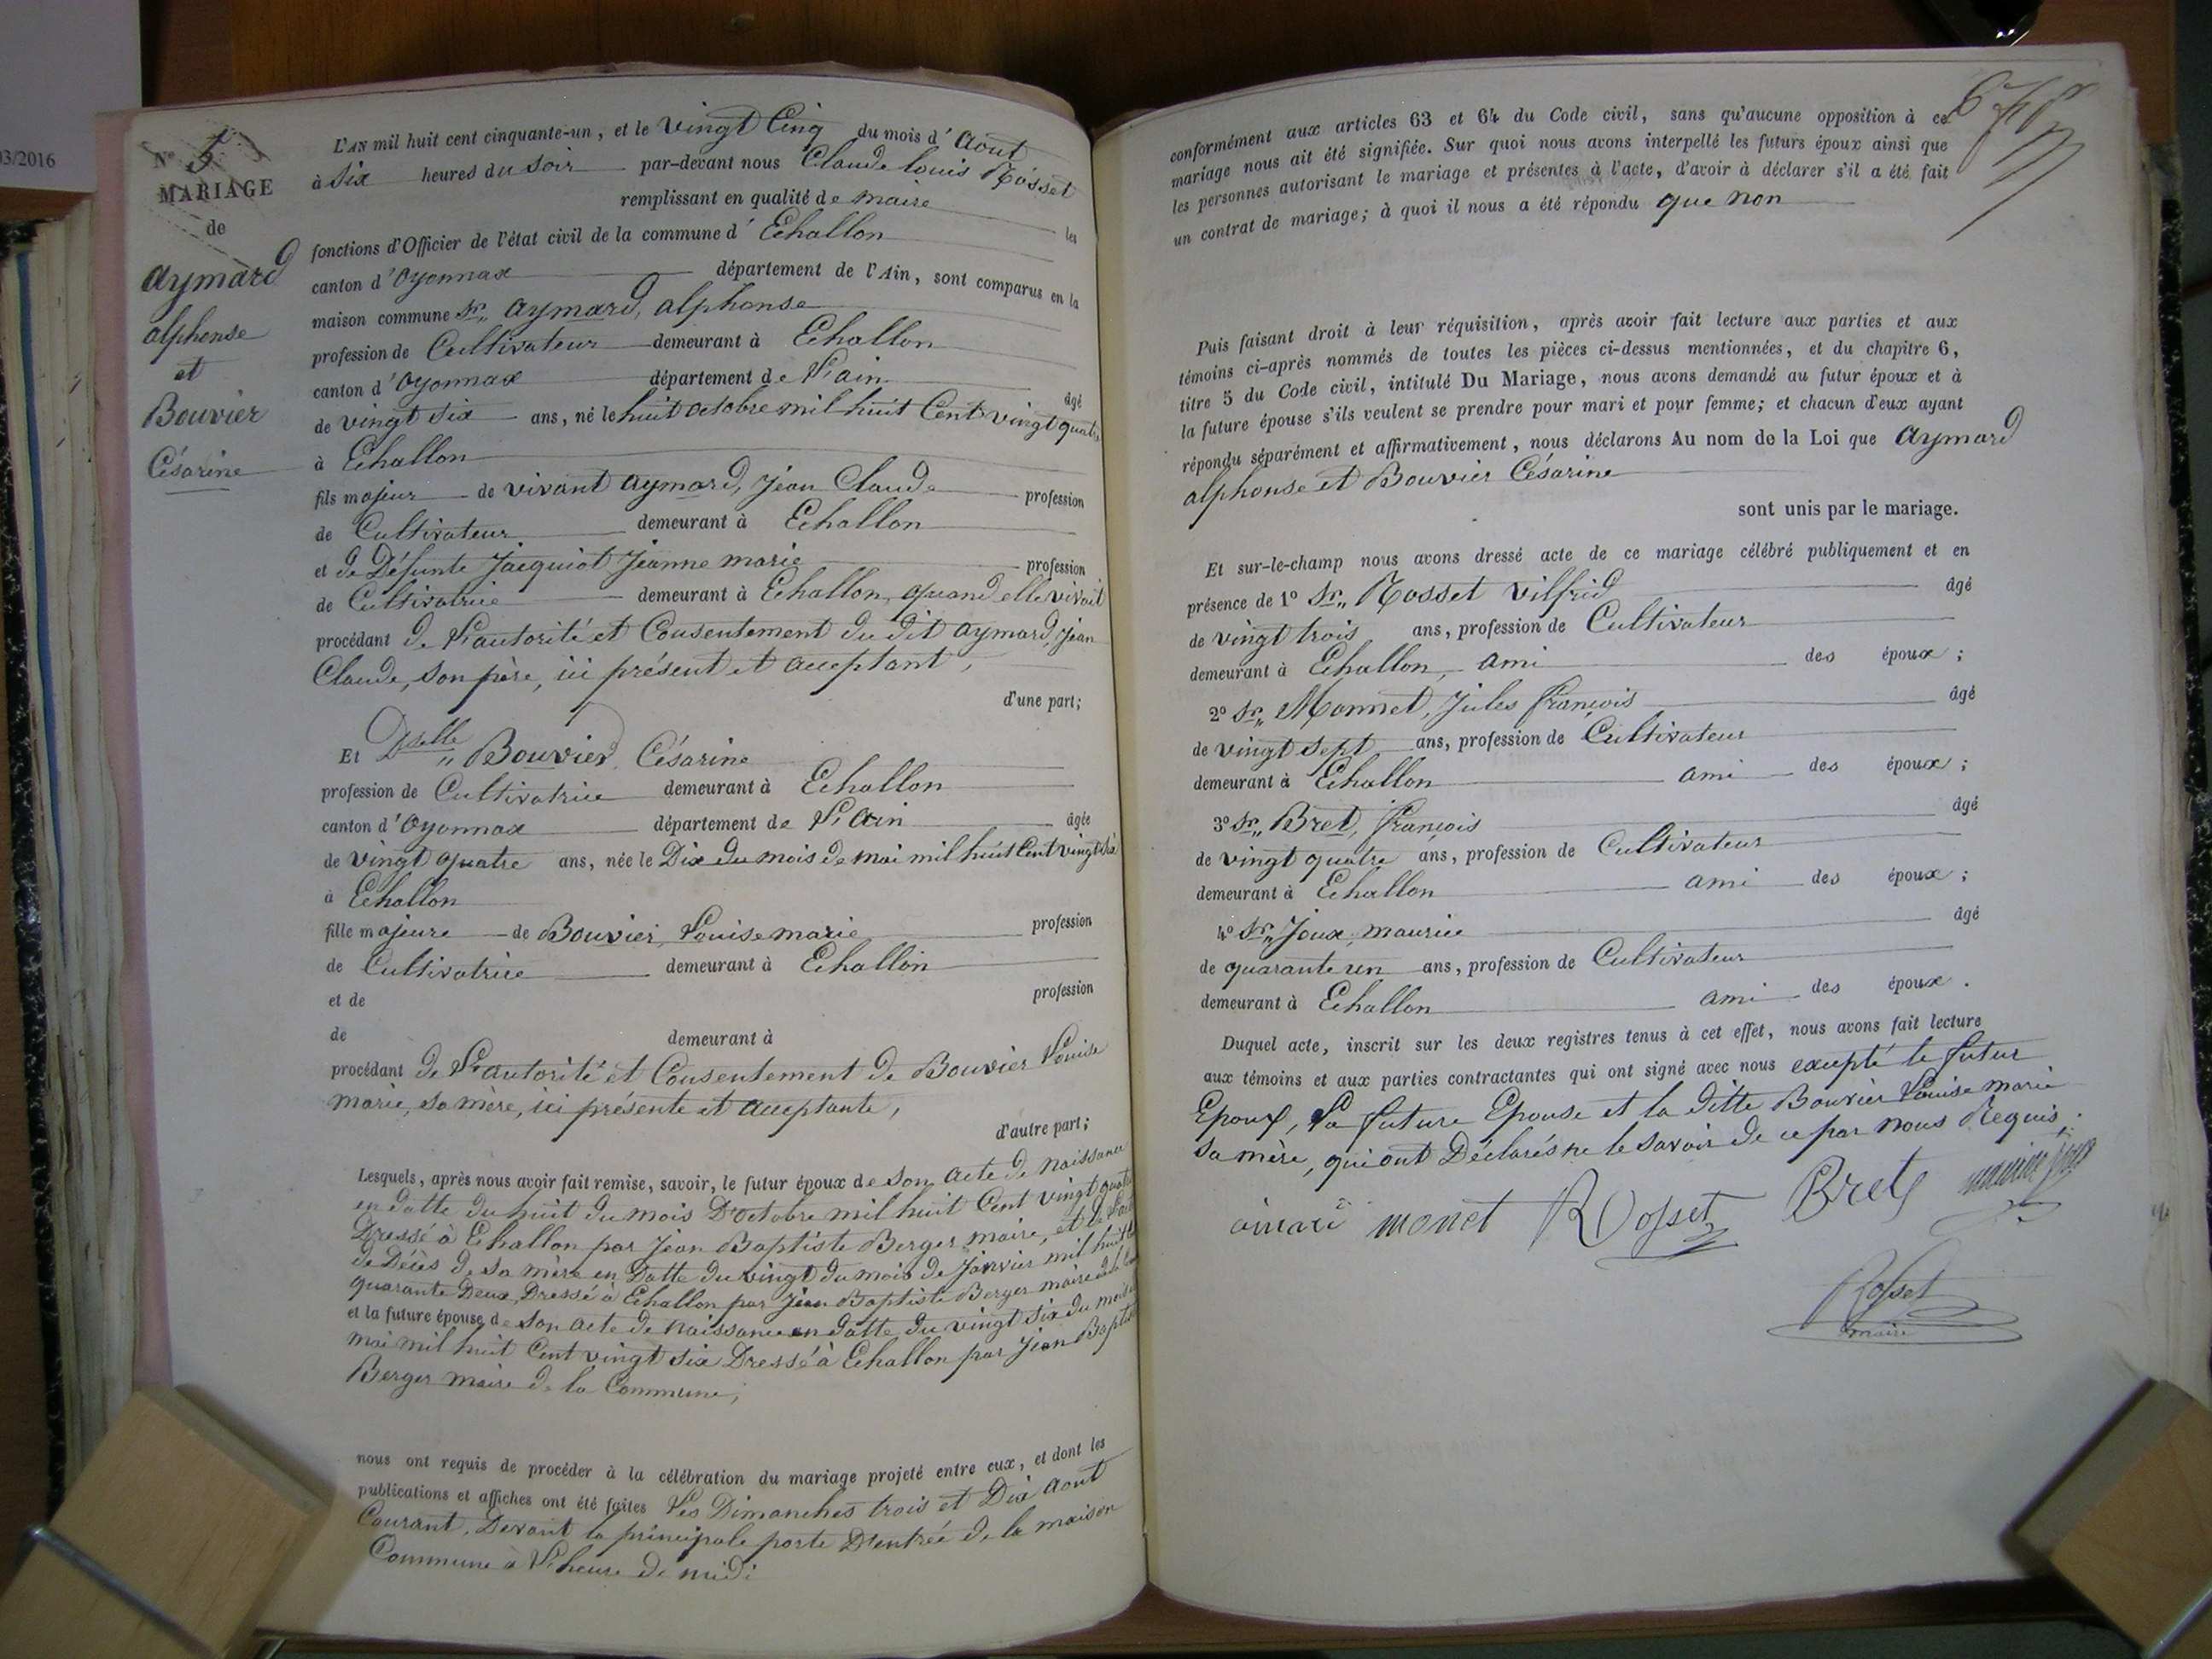 03/2016
N° 5
MARIAGE
de
aymard
alphonse
et
Bouvier
Césarine
L'AN mil huit cent cinquante-un, et le vingt Cinq du mois d'Aout
à Six heures du Soir par-devant nous Claude louis Rosset
remplissant en qualité de maire les
fonctions d'Officier de l'état civil de la commune d'Echallon
canton d'Oyonnax département de l'Ain, sont comparus en la
maison commune Sr. aymard, alphonse
profession de Cultivateur demeurant à Echallon
canton d'Oyonnax département de l'ain âgé
de vingt six ans, né le huit octobre mil huit Cent vingt quatre
à Echallon
fils majeur de vivant aymard, Jean Claude profession
de Cultivateur demeurant à Echallon
et de Défunte Jacquiot Jeanne marie profession
de Cultivatrice demeurant à Echallon, quand elle vivait
procédant de l'autorité et Consentement du dit aymard, Jean
Claude, son père, ici présent et acceptant,
d'une part;
Et Dselle Bouvier Césarine
profession de Cultivatrice demeurant à Echallon
canton d'Oyonnax département de l'Ain âgée
de vingt quatre ans, née le Dix du mois de mai mil huit Cent vingt six
à Echallon
fille majeure de Bouvier, Louise marie profession
de Cultivatrice demeurant à Echallon
et de profession
de demeurant à
procédant de l'autorité et Consentement de Bouvier Louise
marie, sa mère, ici présente et acceptante,
d'autre part;
Lesquels, après nous avoir fait remise, savoir, le futur époux de son acte de naissance
en datte du huit du mois D'octobre mil huit Cent vingt quatre
Dressé à Echallon par Jean Baptiste Berger maire, et de
de Décès de sa mère en Datte du vingt du mois de Janvier mil huit
quarante Deux, Dressé à Echallon par Jean Baptiste Berger maire
et la future épouse de son acte de naissance en datte du vingt six du mois
mai mil huit Cent vingt six Dressé à Echallon par Jean Baptiste
Berger maire de la Commune,
nous ont requis de procéder à la célébration du mariage projeté entre eux, et dont les
publications et affiches ont été faites Les Dimanches trois et Dix aout
Courant, Devant la principale porte D'entrée de la maison
Commune à l'heure de midi
conformément aux articles 63 et 64 du Code civil, sans qu'aucune opposition à ce
mariage nous ait été signifiée. Sur quoi nous avons interpellé les futurs époux ainsi que
les personnes autorisant le mariage et présentes à l'acte, d'avoir à déclarer s'il a été fait
un contrat de mariage; à quoi il nous a été répondu que non
Puis faisant droit à leur réquisition, après avoir fait lecture aux parties et aux
témoins ci-après nommés de toutes les pièces ci-dessus mentionnées, et du chapitre 6,
titre 5 du Code civil, intitulé Du Mariage, nous avons demandé au futur époux et à
la future épouse s'ils veulent se prendre pour mari et pour femme; et chacun d'eux ayant
répondu séparément et affirmativement, nous déclarons Au nom de la Loi que Aymard
alphonse et Bouvier Césarine
sont unis par le mariage.
Et sur-le-champ nous avons dressé acte de ce mariage célébré publiquement et en
présence de 1° Sr. Rosset vilfrid âgé
de vingt trois ans, profession de Cultivateur
demeurant à Echallon, ami des époux;
2° Sr. Monnet, Jules françois âgé
de vingt sept ans, profession de Cultivateur
demeurant à Echallon ami des époux;
3° Sr. Bret, françois âgé
de vingt quatre ans, profession de Cultivateur
demeurant à Echallon ami des époux;
4° Sr. Joux, maurice âgé
de quarante un ans, profession de Cultivateur
demeurant à Echallon ami des époux.
Duquel acte, inscrit sur les deux registres tenus à cet effet, nous avons fait lecture
aux témoins et aux parties contractantes qui ont signé avec nous excepté le futur
Epoux, la future Epouse et la ditte Bouvier Louise marie
sa mère, qui ont Déclarés ne le savoir de ce par nous Requis.
monet Rosset Bret maurice joux
Rosset
maire